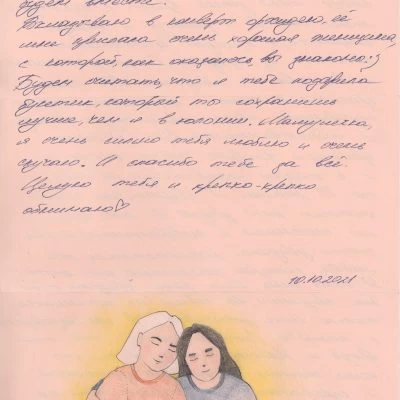 будем вместе.
Вкладываю в конверт орхидею, её
мне прислала очень хорошая женщина,
с которой, как оказалось, вы знакомы :)
Будем считать, что я тебе подарила
букетик, который ты сохранишь
лучше, чем я в колонии. Мамулечка,
я очень сильно тебя люблю и очень
скучаю. И спасибо тебе за всё.
Целую тебя и крепко-крепко
обнимаю♡
10.10.2021